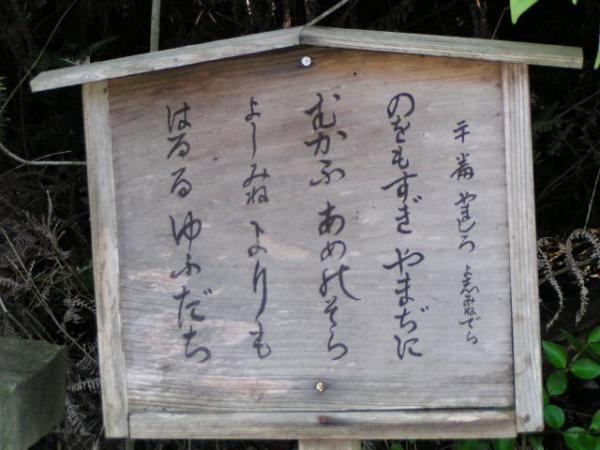 廿番 やましろ よしみねでら
のをもすぎ やまぢに
むかふ あめのそら
よしみね よりも
はるる ゆふだち